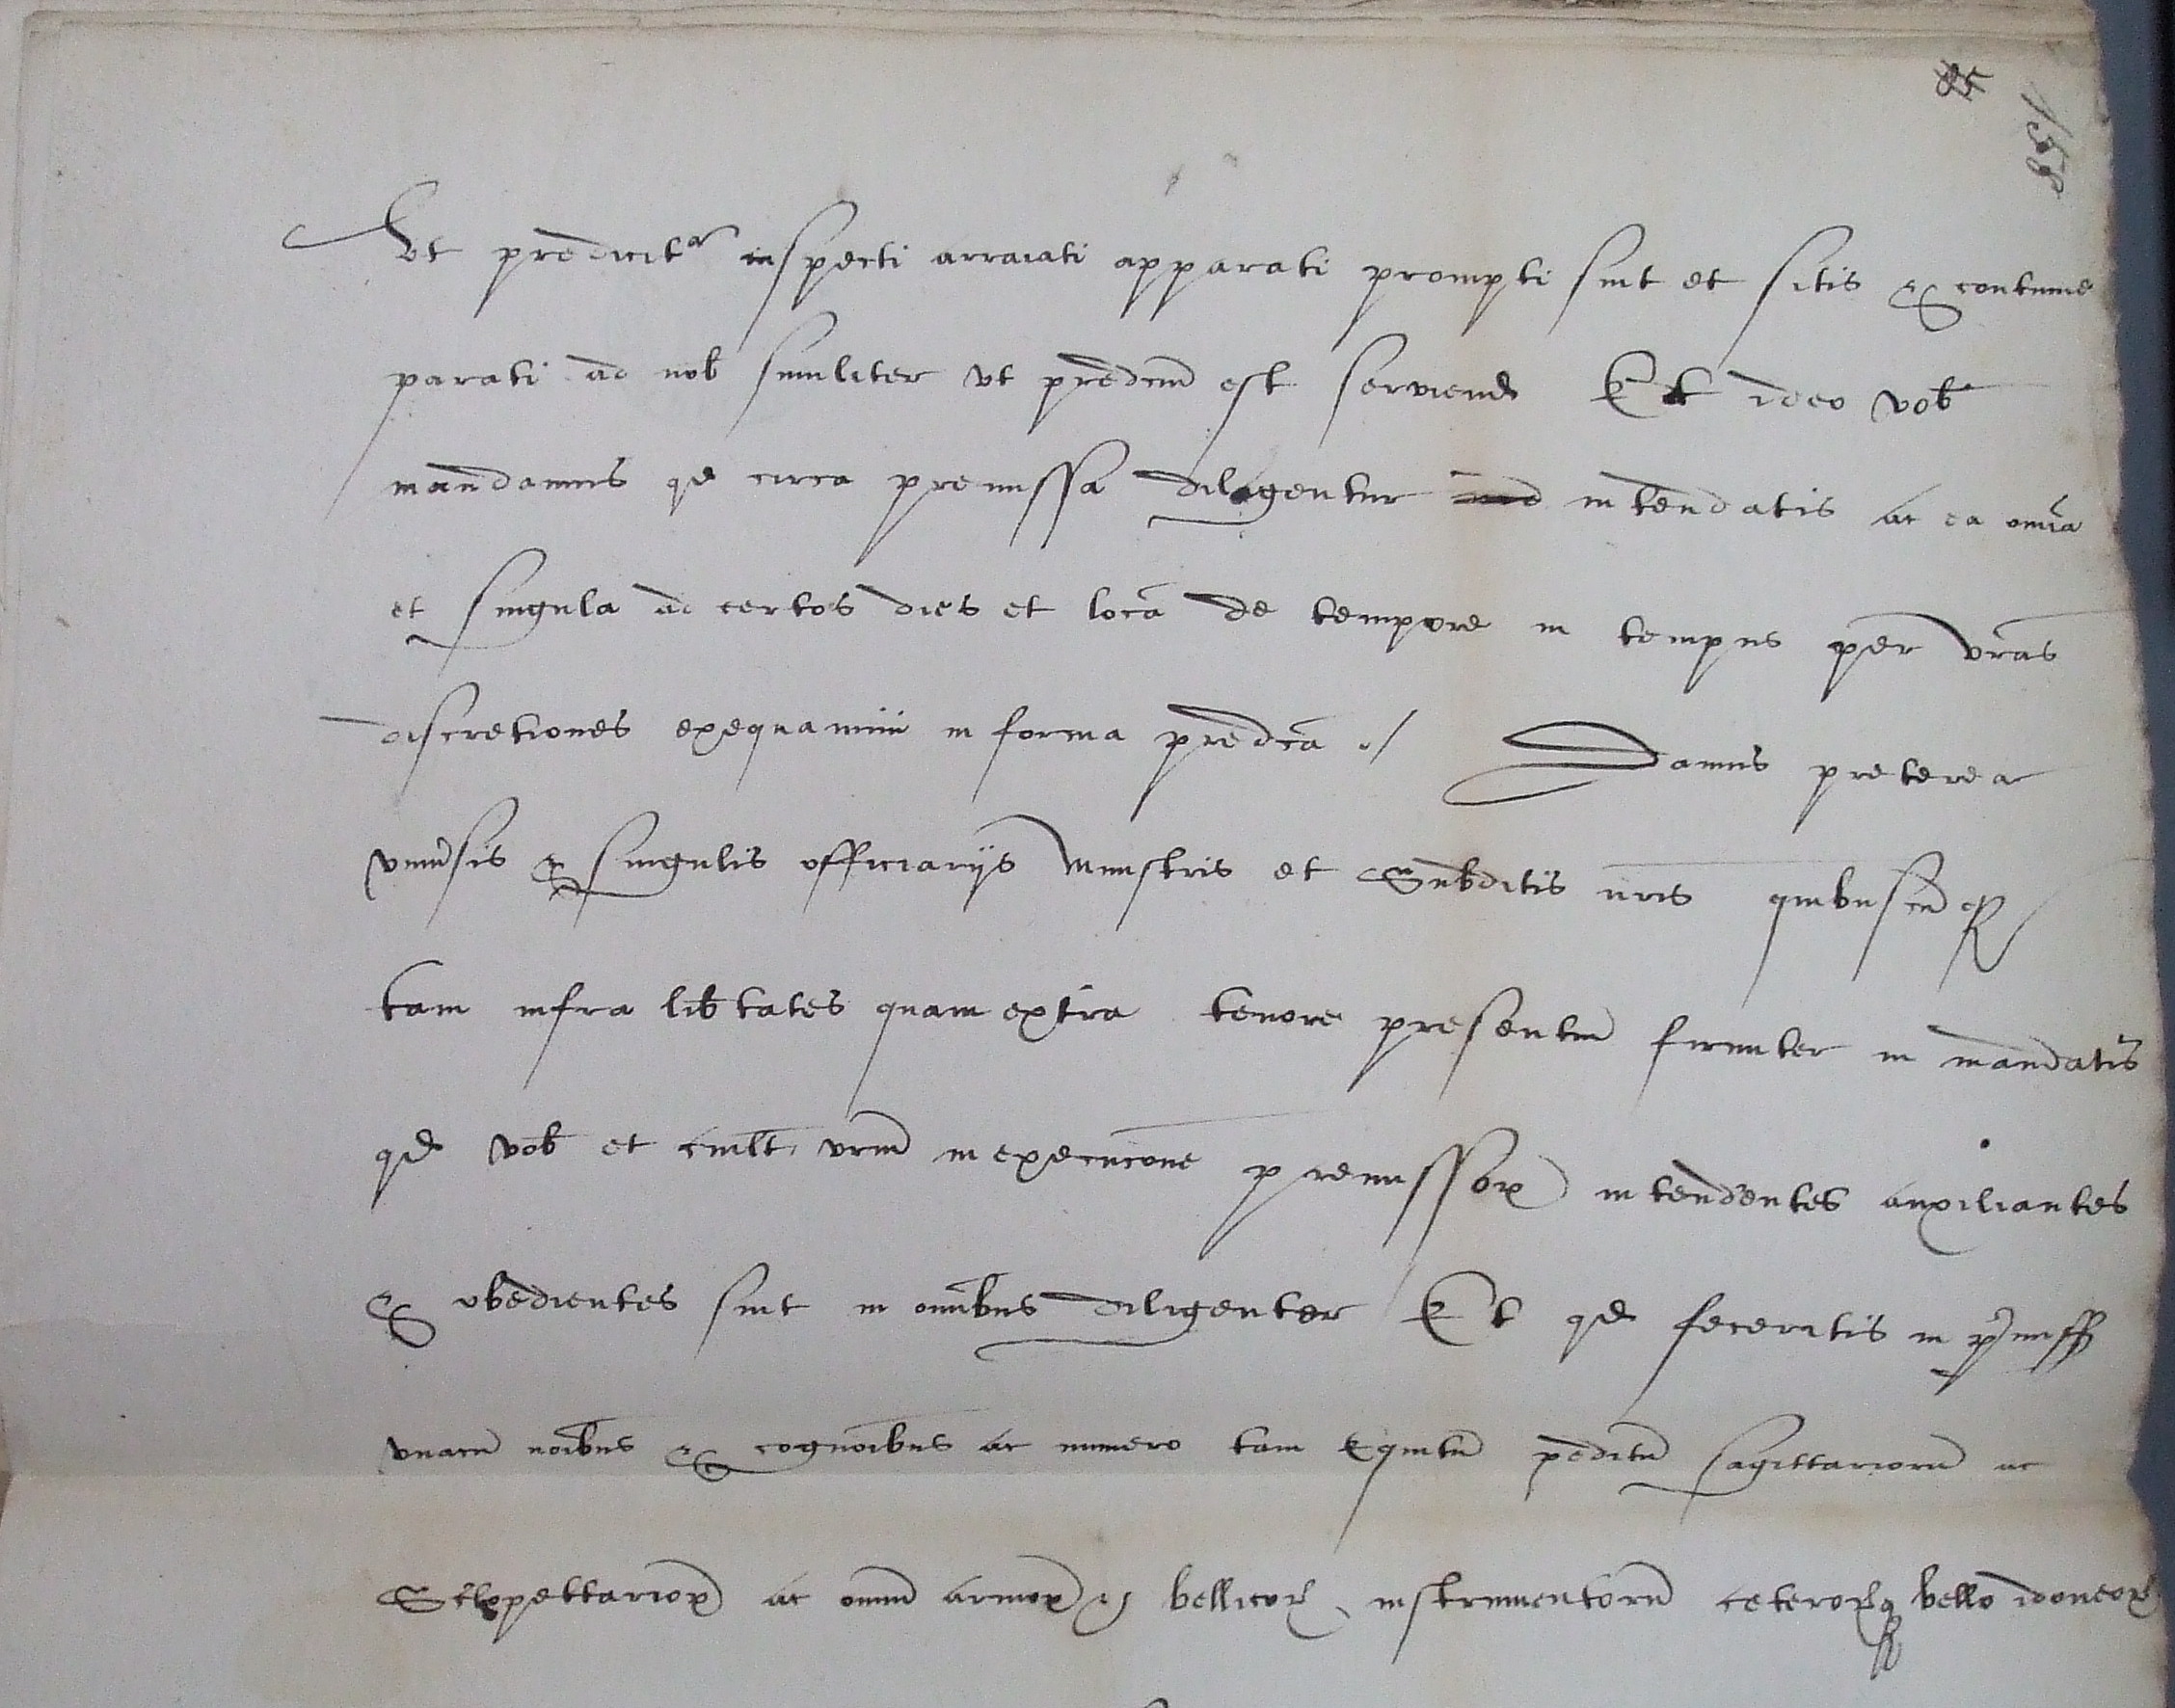 158
Ut predicitr inspecti arraiati apparati prompti sint et sitis & continue
parati ad nob similiter ut predcm est serviend Et ideo vob
mandamus qd circa premissa diligentur intendatis ac ea omia
et singula ad certos dies et loca de tempore in tempus per vras
discretiones exequamini in forma predca ./ Damus preterea
univsis & singulis officiariis ministris et Subditis nris quibuscuq
tam infra libtates quam extra tenore presentiu firmiter in mandatis
qd vob et cuilt vrm in execucione premissor intendentes auxiliantes
& obedientes sint in omibus diligenter Et qd feceritis in pmiss
unacu noibus & cognoibus ac numero tam Equitu peditu sagittarioru ac
Sclopettarior ac omniu armor bellicor instrumentoru ceterorq bello idoneor